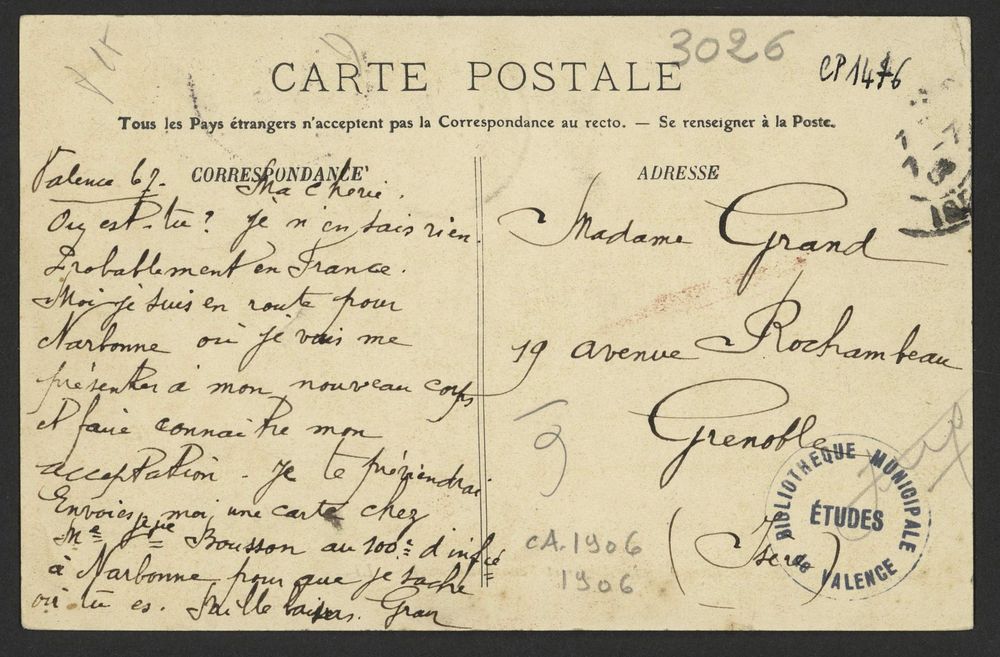 3026
CP1476
CARTE POSTALE
Tous les Pays étrangers n'acceptent pas la Correspondance au recto. — Se renseigner à la Poste.
CORRESPONDANCE
Valence 6/7.
Ma cherie.
Ou es-tu? je n'en sais rien.
Probablement en France.
Moi je suis en route pour
Narbonne où je vais me
présenter à mon nouveau corps
et faire connaitre mon
acceptation. Je te préviendrai
Envoies moi une carte chez
Bousson au 100e d'infie
à Narbonne pour que je sache
où tu es. Mille baisers.
ADRESSE
Madame Grand
19 avenue Rochambeau
Grenoble
(Isère)
cA.1906
1906
BIBLIOTHEQUE MUNICIPALE
ÉTUDES
DE VALENCE